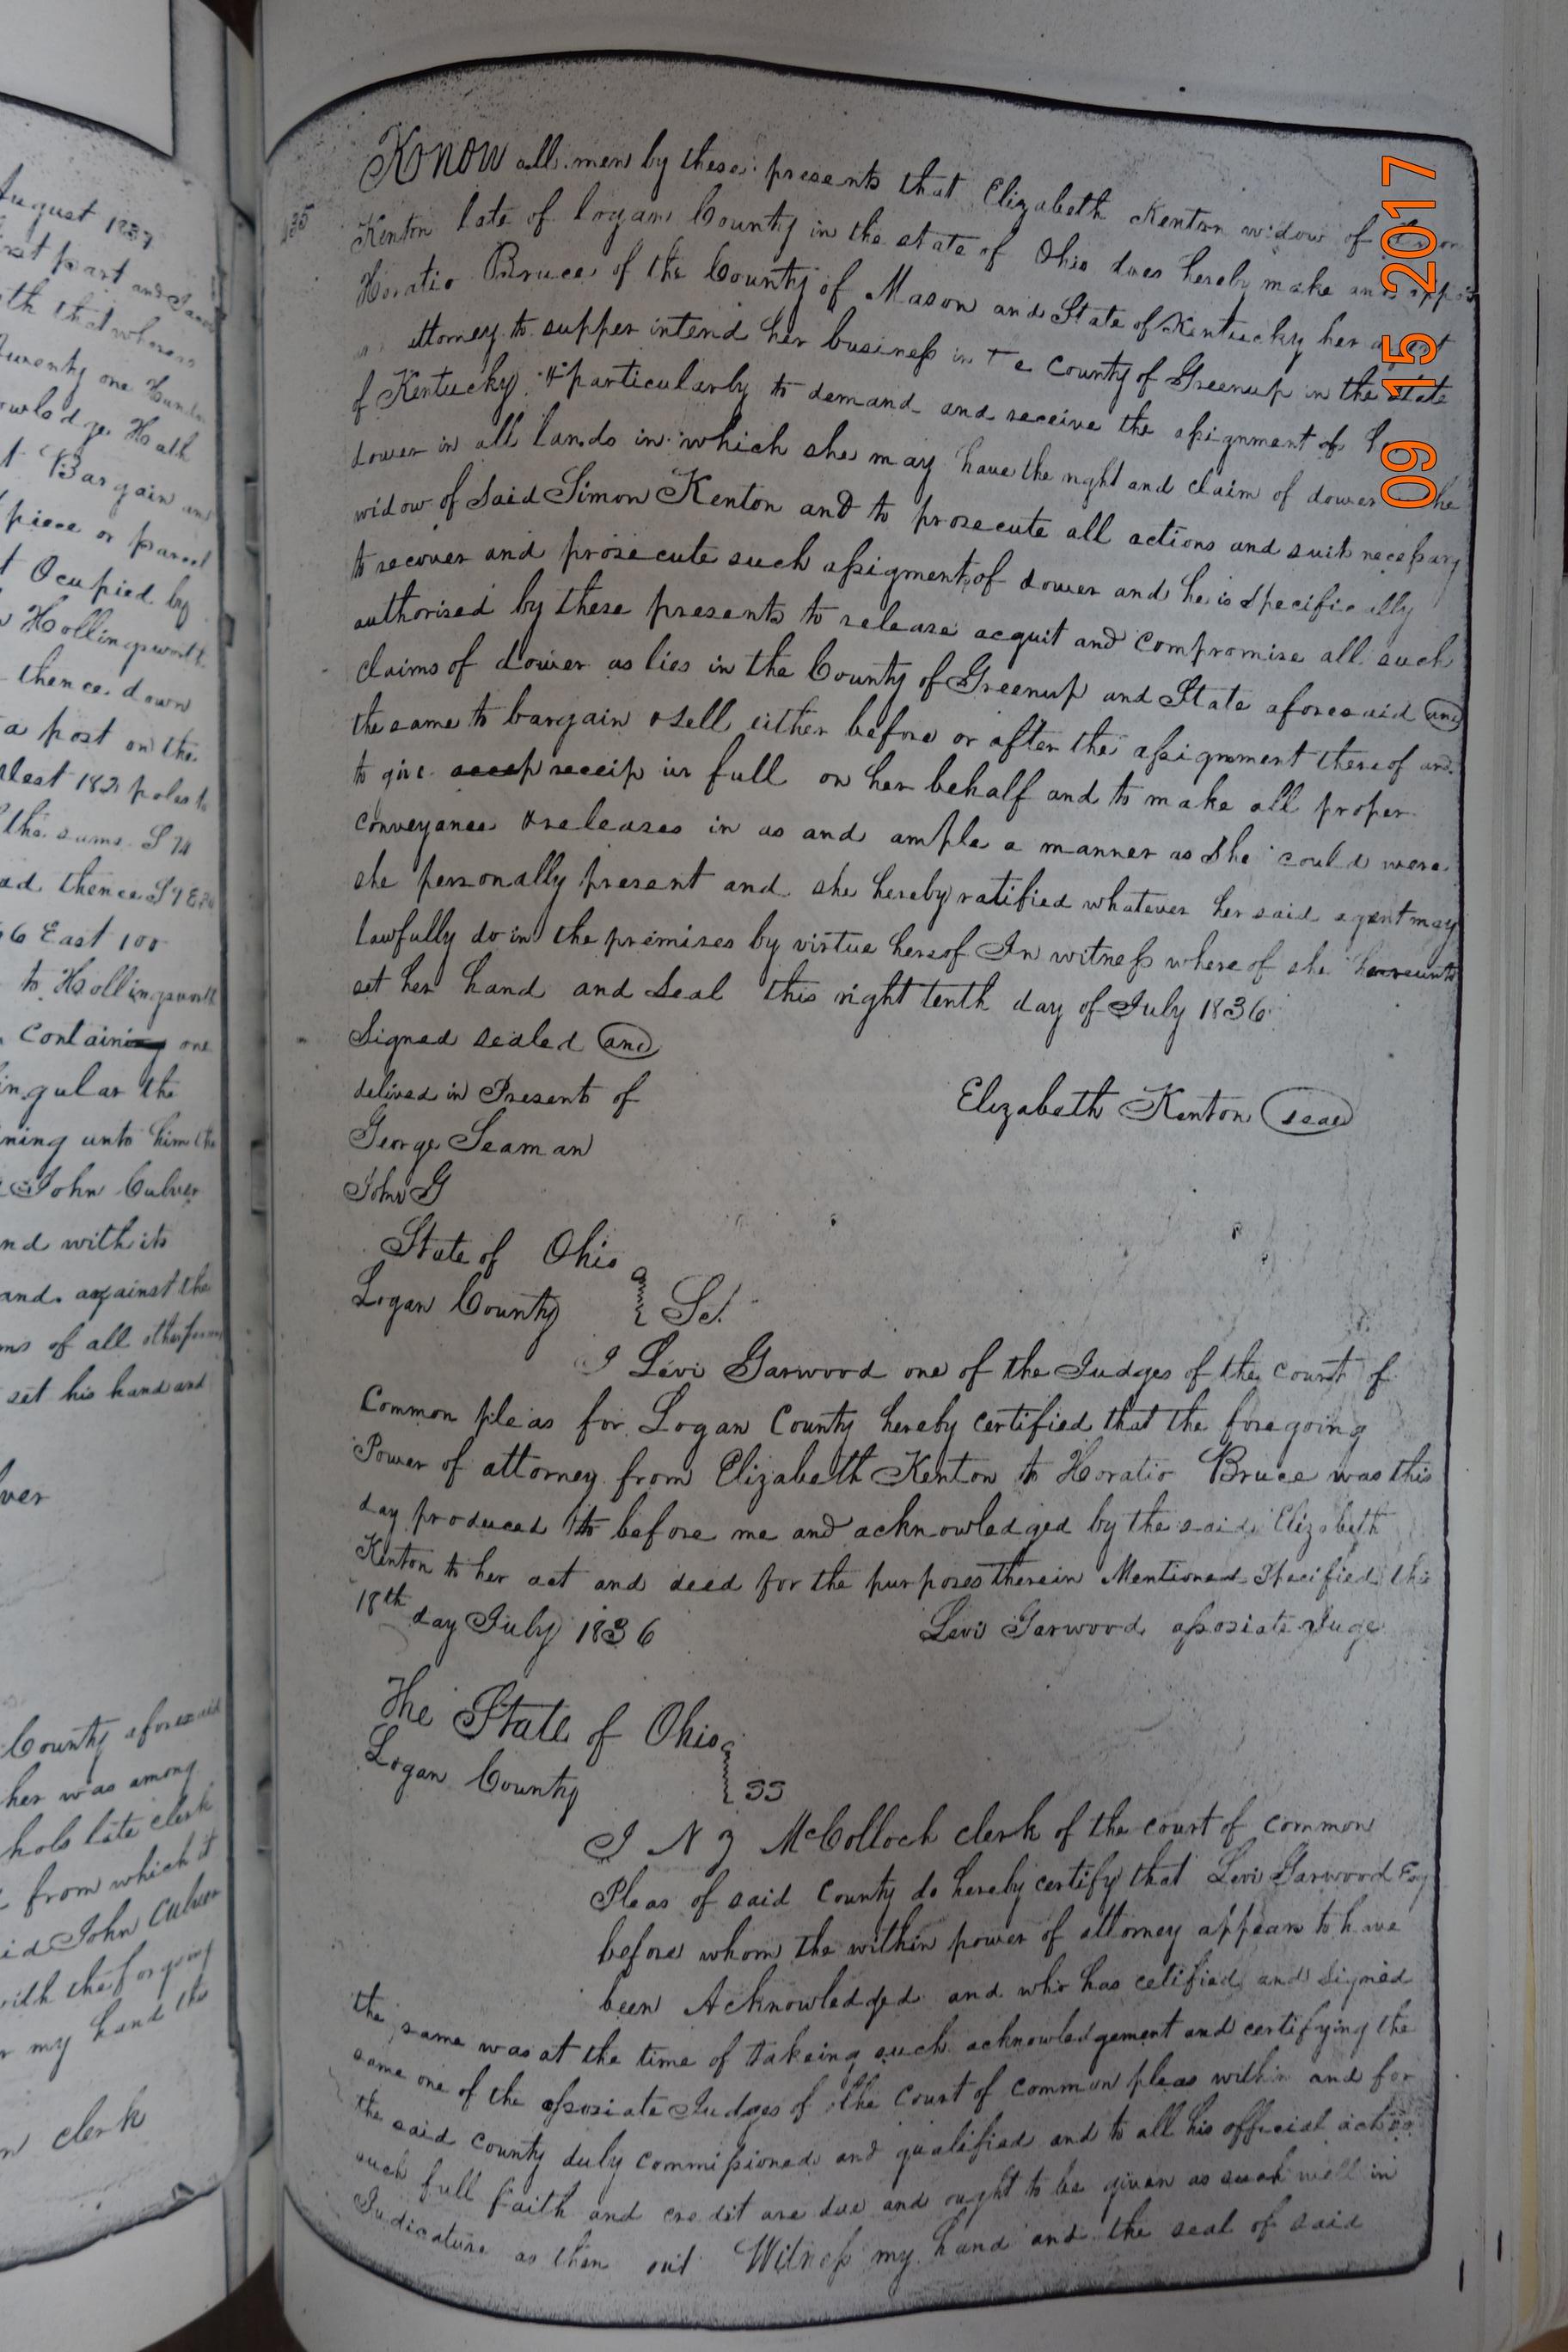 August 1837
first part and
th that whereas
Twenty one
owledge Hath
t Bargain and
piece or parcel
t Ocupied by
Hollingsworth
thence down
a post on the
West 182 poles to
the same S 74
ad thence S
6 East 100
to Hollingsworth
Containing one
ingular the
ning unto him the
John Culver
nd with its
and against the
ms of all other persons
set his hand and
ver
County aforesaid
her was among
hols late clerk
from which it
id John Culver
with the forgoing
r my hand this
n clerk
Konow all men by these presents that Elizabeth Kenton widow of Simon
Kenton late of Logan County in the state of Ohio does hereby make and
Horatio Bruce of the County of Mason and State of Kentucky her agent
attorney to supper intend her businefs in County of Greenup in the State
of Kentucky & particularly to demand and receive the afsignment of
dower in all lands in which she may have the right and claim of dower
widow of said Simon Kenton and to prosecute all actions and suit necefsary
to recover and prosecute such afsigment of dower and he is specifically
authorised by these presents to release acquit and compromise all such
claims of dower as lies in the County of Greenup and State aforesaid and
the same to bargain & sell either before or after the afsignment thereof and
to give receip in full on her behalf and to make all proper
conveyance & releases in as and ample a manner as she could were
she personally present and she hereby ratified whatever her said agent may
lawfully do in the premises by virtue hereof In witnefs where of she hereunto
set her hand and seal this eight tenth day of July 1836
Signed sealed and
delived in Present of
Elizabeth Kenton seal
George Seaman
John G
State of Ohio
Logan County Sct.
I Levi Garwood one of the Judges of the court of
Common pleas for Logan County hereby certified that the foregoing
Power of attorney from Elizabeth Kenton to Horatio Bruce was this
day produced to before me and acknowledged by the said Elizabeth
Kenton to her act and deed for the purposes therein Mentioned Specified this
18th day July 1836 Levi Garwood afsosiate Juge
The State of Ohio
Logan County SS
I N Z McColloch clerk of the court of common
Pleas of said County do hereby certify that Levi Garwood Esq
before whom the within power of attorney appears to have
been Acknowledged and who has cetified and signed
the same was at the time of takeing such acknowledgement and certifying the
same one of the afsosiate Judges of the Court of common pleas within and for
the said county duly commifsioned and qualified and to all his official acts as
such full faith and credit are due and ought to be given as such well in
Judicature as then out Witnefs my hand and the seal of said
09 15 2017